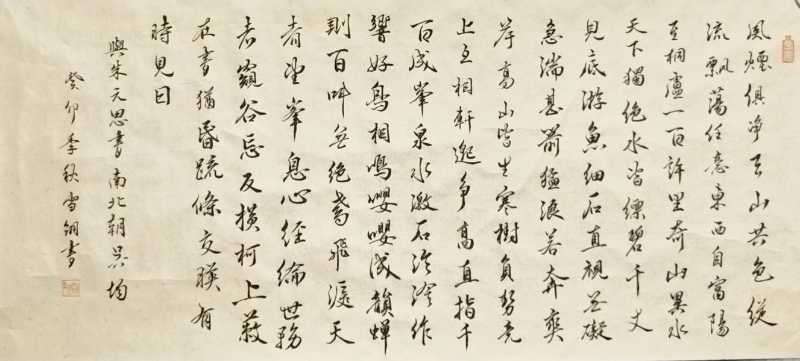 風煙俱净天山共色從
流飄蕩任意東西自富陽
至桐廬一百許里奇山異水
天下獨絕水皆縹碧千丈
見底游魚細石直視無礙
急湍甚箭猛浪若奔夾
岸高山皆生寒樹負勢競
上互相軒邈爭高直指千
百成峯泉水激石泠泠作
響好鳥相鳴嚶嚶成韻蟬
則百叫無絕鳶飛戾天
者望峯息心經綸世務
者窺谷忘反橫柯上蔽
在晝猶昏疏條交映有
時見日
與朱元思書南北朝吳均
癸卯季秋雪書